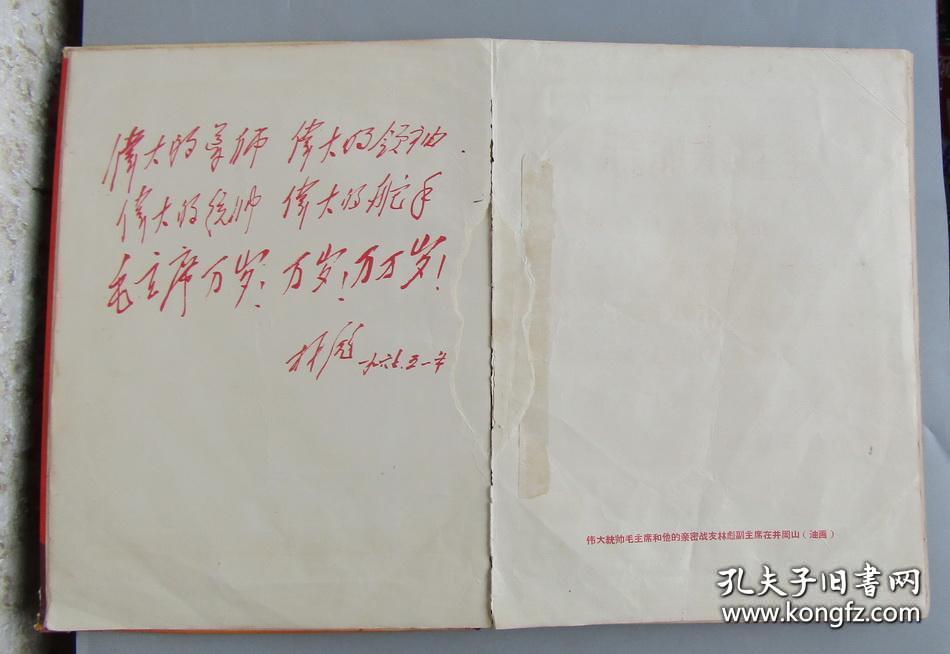 偉大的导师 偉大的領袖
偉大的统帅 偉大的舵手
毛主席万岁！万岁！万万岁！
林彪 一九六七.五一节
伟大統帅毛主席和他的亲密战友林彪副主席在井岡山（油画）
孔夫子旧書网
www.kongfz.com